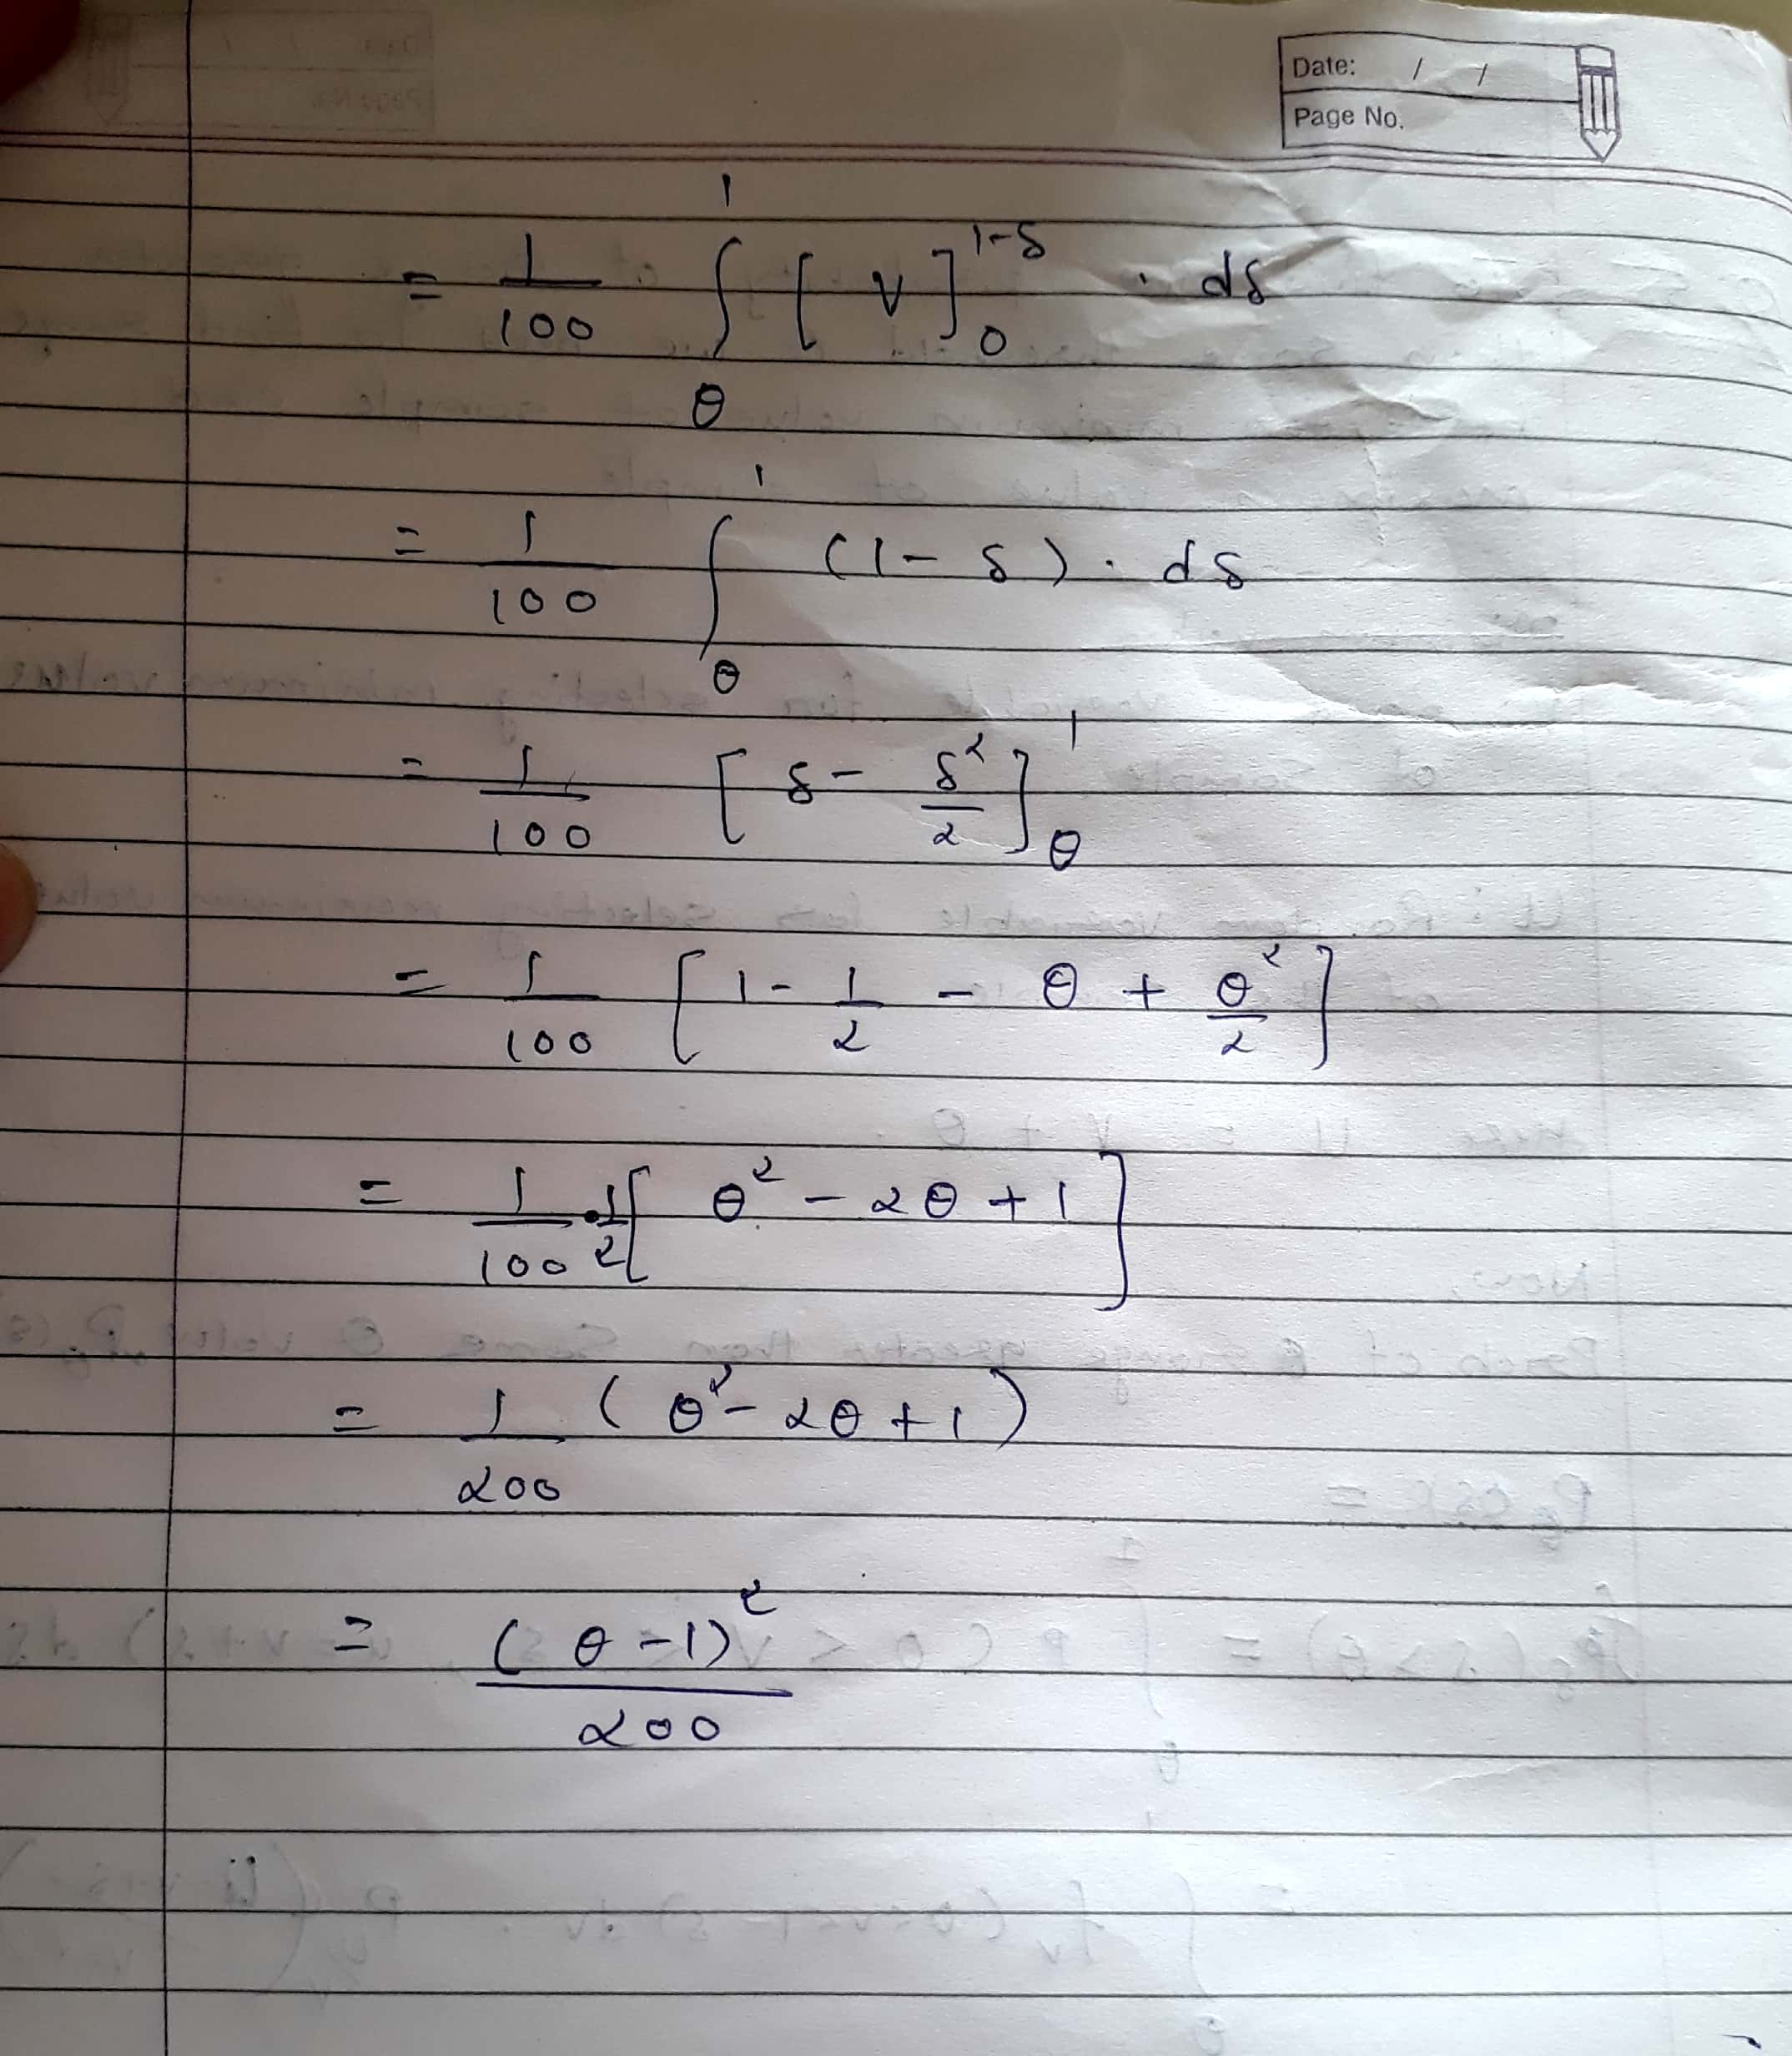 Date: / /
Page No.
= 1/100 ∫_θ^1 [v]_0^{1-s} . ds
= 1/100 ∫_θ^1 (1-s) . ds
= 1/100 [s - s²/2]_θ^1
= 1/100 [1 - 1/2 - θ + θ²/2]
= 1/100 . 1/2 [θ² - 2θ + 1]
= 1/200 (θ² - 2θ + 1)
= (θ-1)²/200